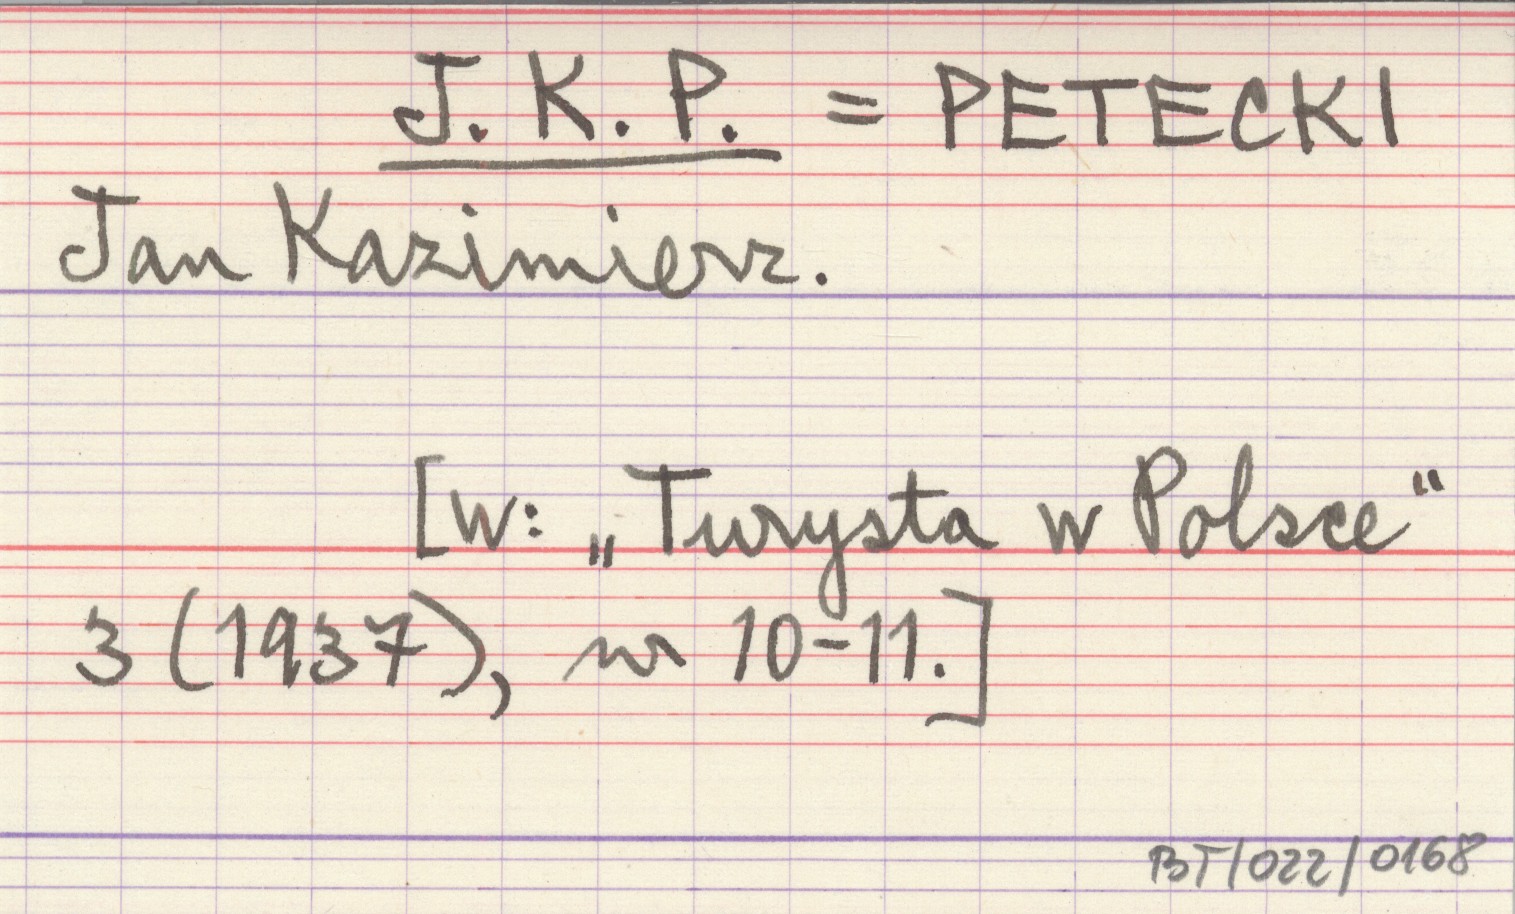 J. K. P. = PETECKI
Jan Kazimierz.
[w: „Turysta w Polsce“
3 (1937), nr 10-11.]
BT/022/0168